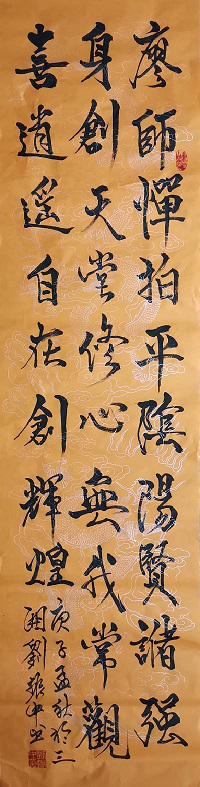 廖師憚拍平陰陽賢諸强
身創天堂修心無我常觀
喜逍遥自在創輝煌
庚子孟秋於三
劉